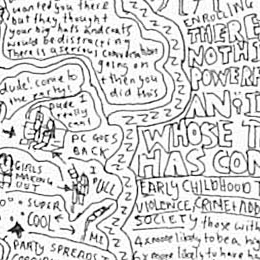 wanted you there
but they thought
your big hats and cats
would be distracting
there is a serious
going on
then you
did this
dude! come to
the party!
Dude I
really
PC GOES
BACK
GIRLS
MAKING
OUT
I
SUPER
COOL
ME
PARTY SPREADS
ENROLLING
THERE
NOTHI
POWERF
AN I
WHOSE T
HAS CON
EARLY CHILDHOOD
VIOLENCE, CRIME + ADD
SOCIETY those with
4x more likely to be a hig
more likely to have h